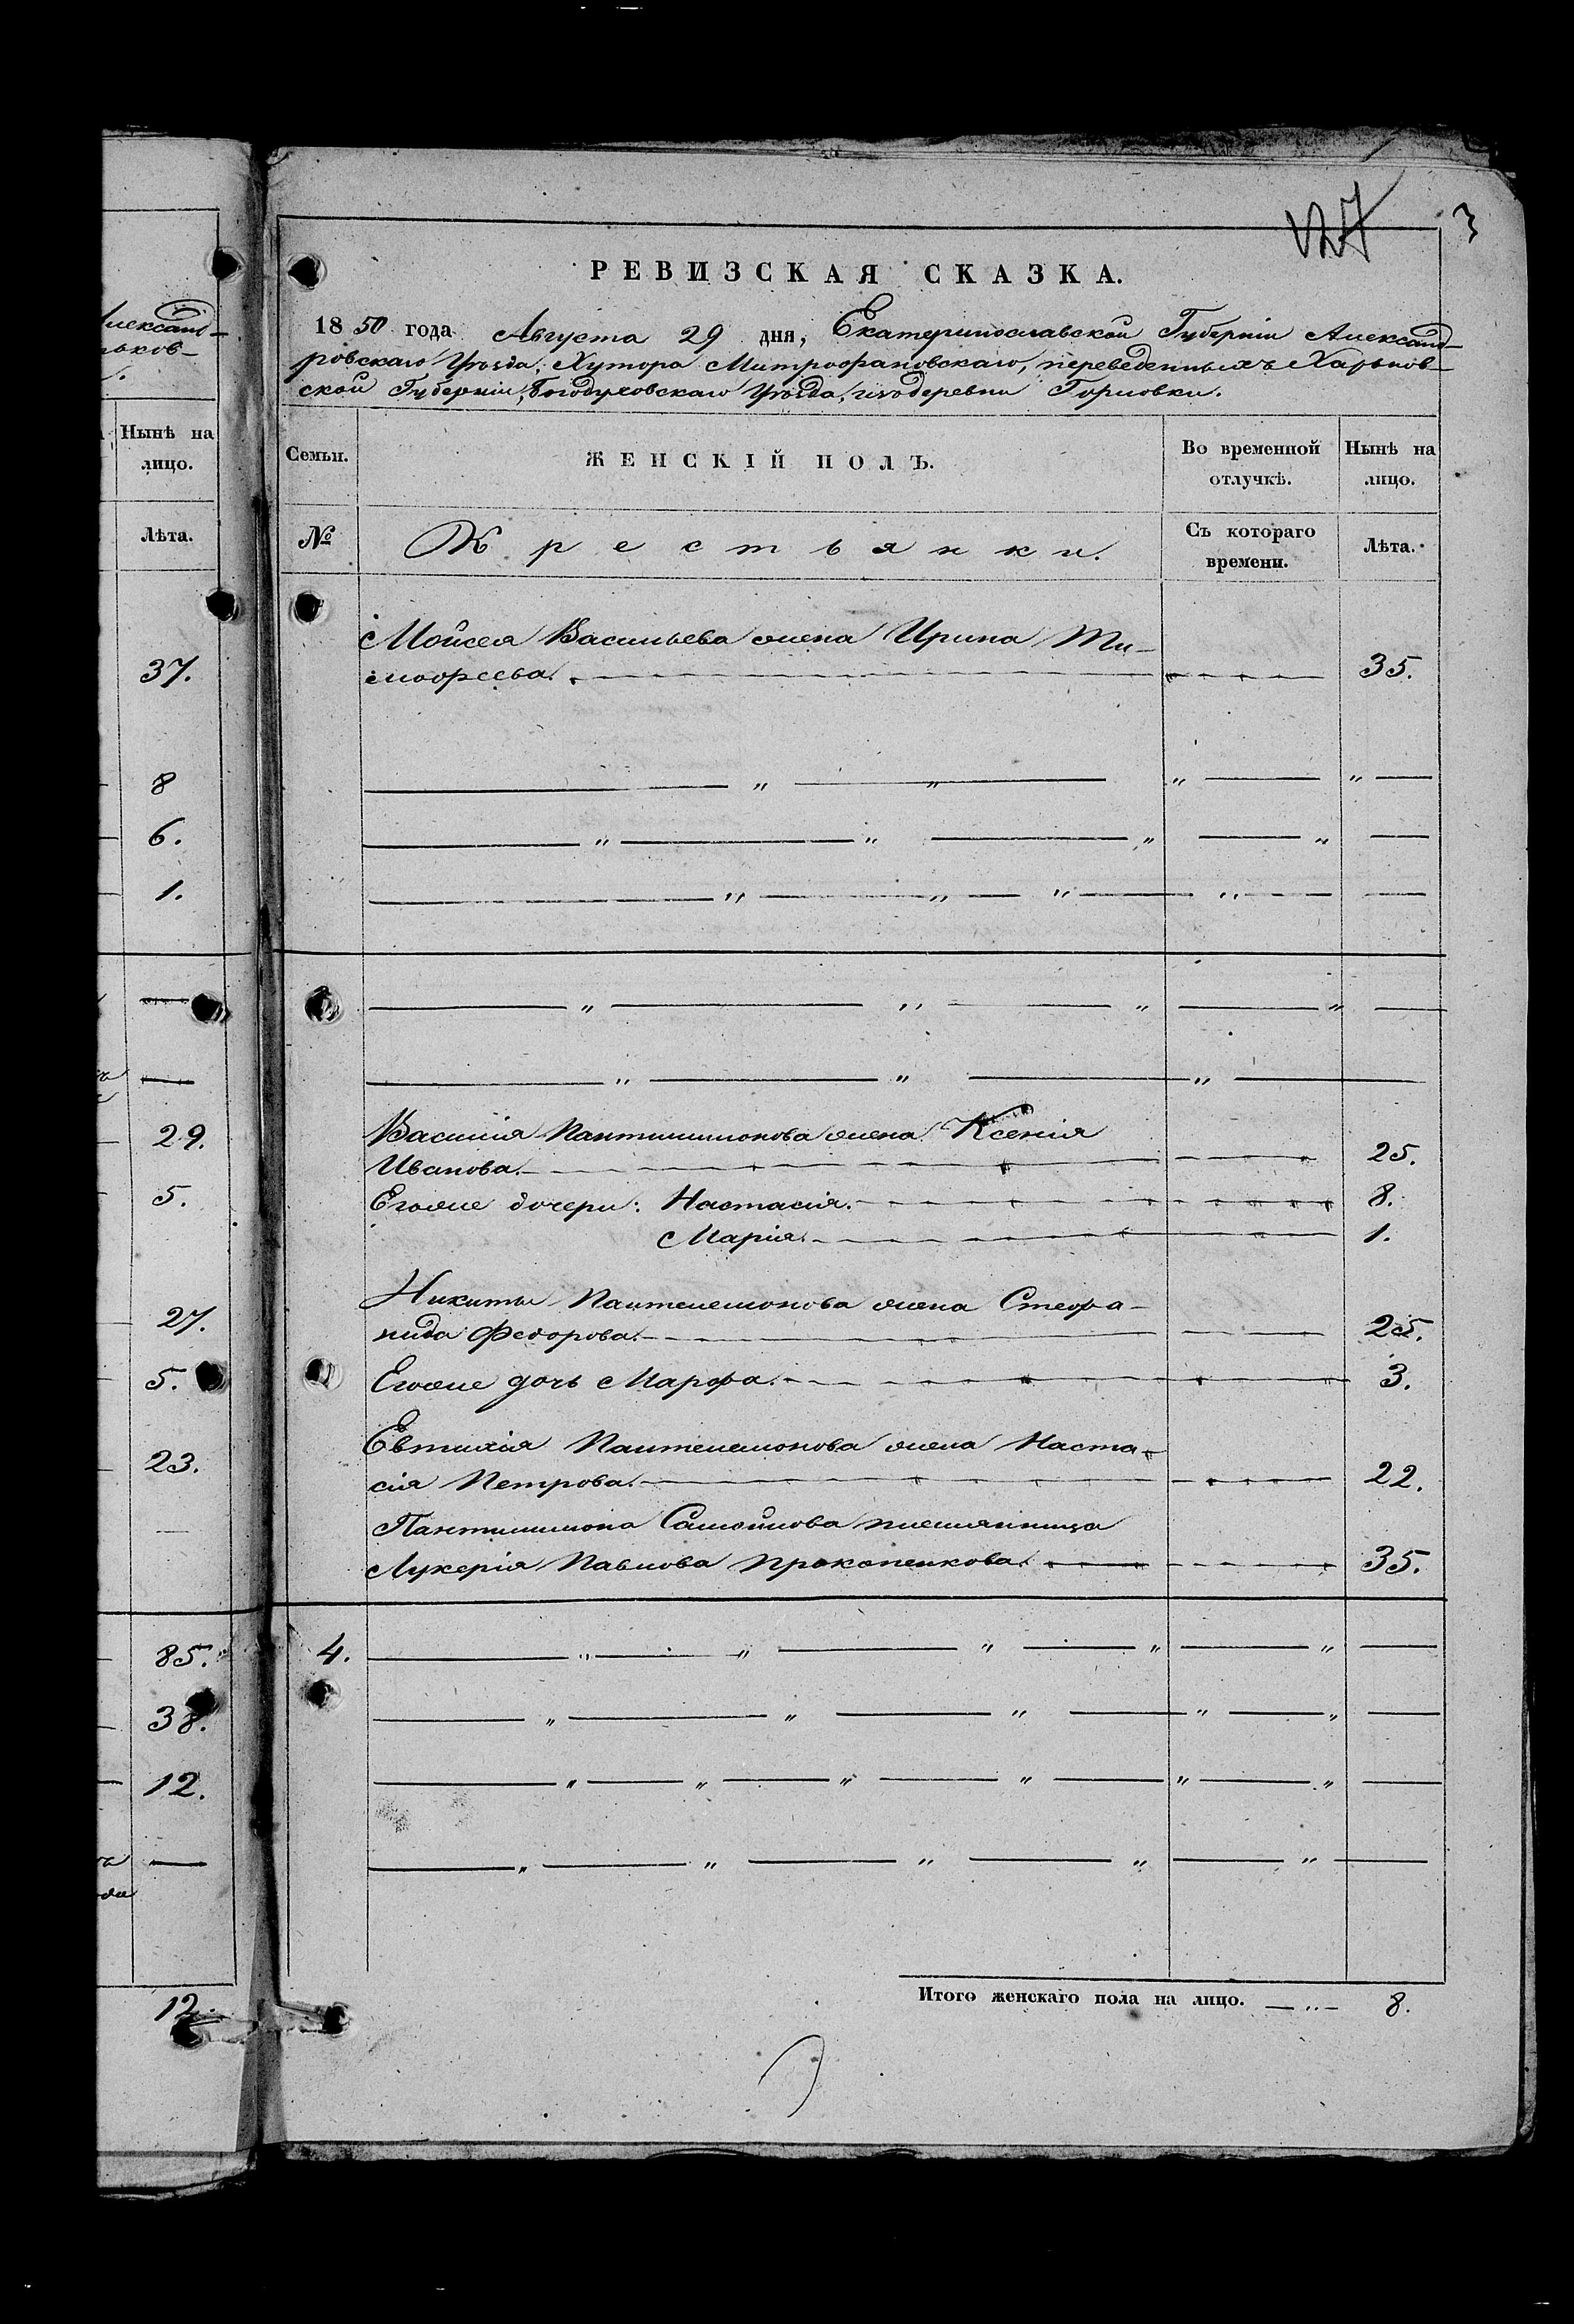 127 3
РЕВИЗСКАЯ СКАЗКА.
1850 года Августа 29 дня, Екатеринославской Губерніи Александ-
ровскаго Уѣзда, Хутора Митрофановскаго, переведенныхъ Харьков-
ской Губерніи, Богодуховскаго Уѣзда, изъ деревни
Александ-
ьков-
Нынѣ на
лицо.
Лѣта.
37.
8
6.
1.
29.
5.
27.
5.
23.
85.
38.
12.
12.
Семьи.
ЖЕНСКІЙ ПОЛЪ.
Во временной
отлучкѣ.
Нынѣ на
лицо.
№
Крестьянки.
Съ котораго
времени.
Лѣта.
Мойсея Васильева жена Ирина Ти-
мофеева. 35.
Василія Пантилимонова жена Ксенія
Иванова. 25.
Егоже дочери: Настасія. 8.
Марія. 1.
Никиты Пантелемонова жена Стефа-
нида Федорова. 25.
Егоже дочь Марфа. 3.
Евтихія Пантелемонова жена Наста-
сія Петрова. 22.
Пантилимона Самойлова племянница
Лукерія Павлова Прокопенкова. 35.
4.
Итого женскаго пола на лицо. 8.